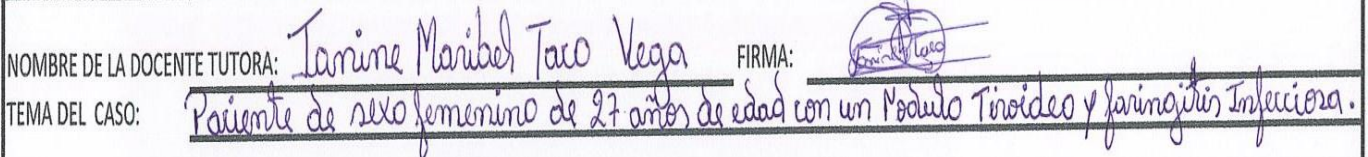 NOMBRE DE LA DOCENTE TUTORA: Janine Maribel Taco Vega FIRMA:
TEMA DEL CASO: Paciente de sexo femenino de 27 años de edad con un Nodulo Tiroideo y faringitis Infecciosa.